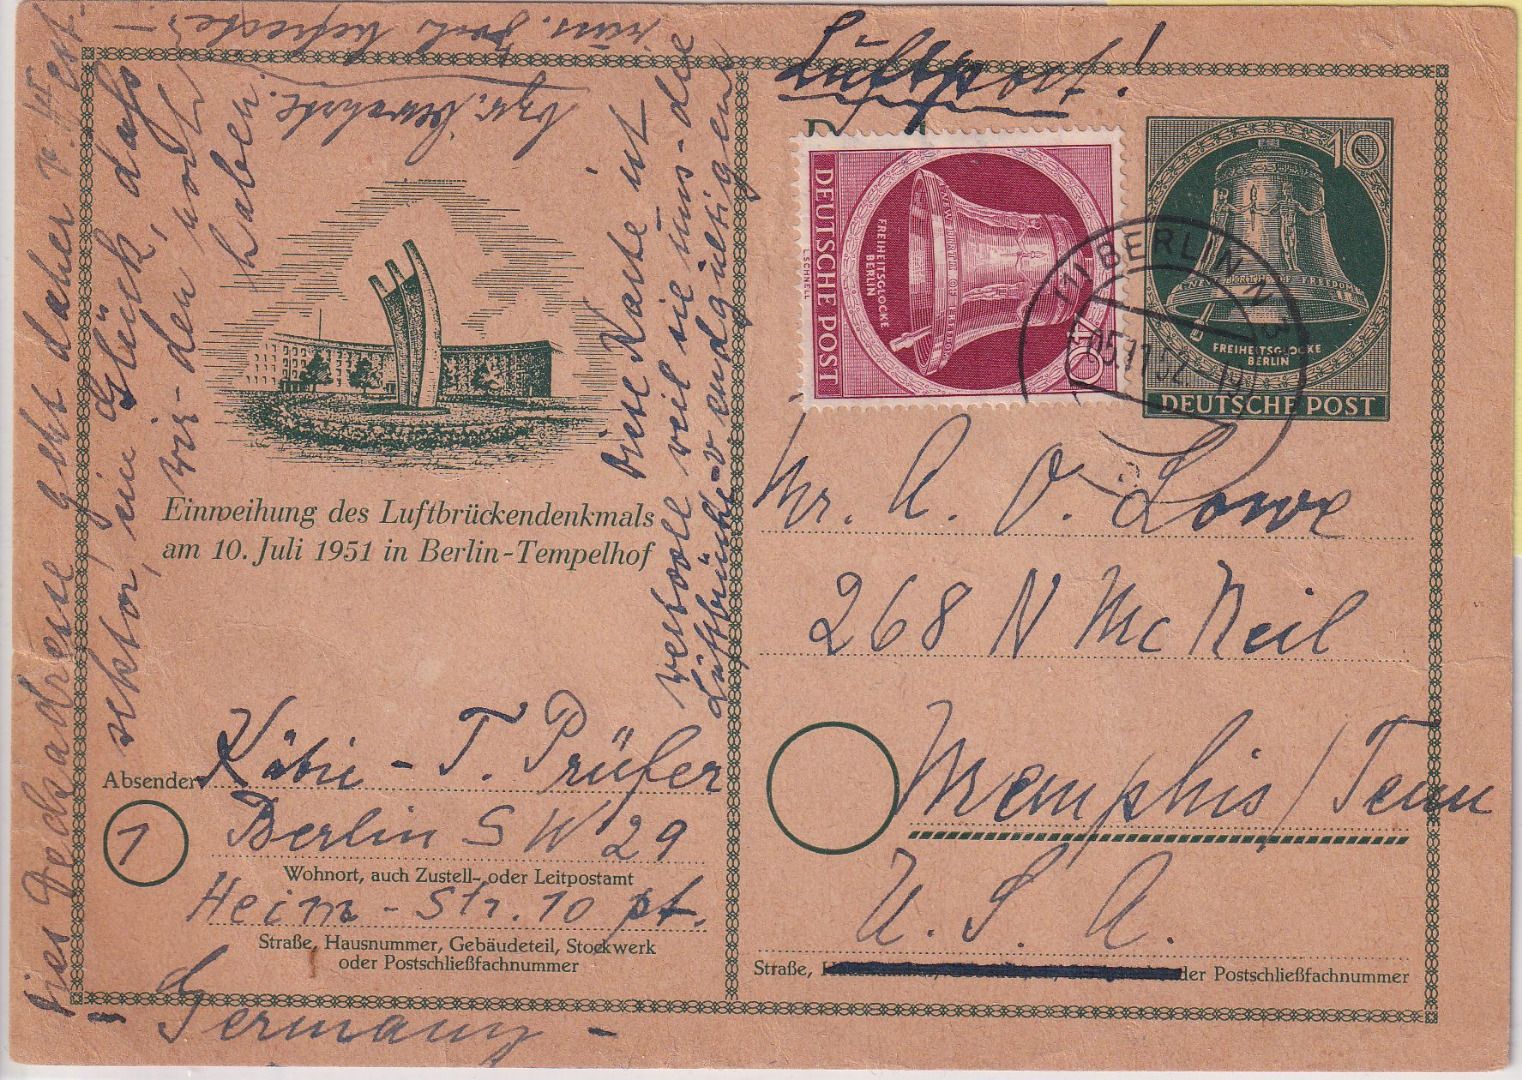 Luftpost!
10
FREIHEITSGLOCKE
BERLIN
DEUTSCHE POST
40
FREIHEITSGLOCKE
BERLIN
L. SCHNELL
DEUTSCHE POST
(1) BERLIN N 3
Mr. A. O. Lowe
268 N Mc Neil
Memphis / Tenn
U. S. A.
Straße, der Postschließfachnummer
Einweihung des Luftbrückendenkmals
am 10. Juli 1951 in Berlin-Tempelhof
Absender
T. Prüfer
1
Berlin SW 29
Wohnort, auch Zustell- oder Leitpostamt
Heim-Str. 10 pt.
Straße, Hausnummer, Gebäudeteil, Stockwerk
oder Postschließfachnummer
- Germany -
Diese Karte ist
wertvoll weil sie uns- die
Luftbrücke
dies Deckadresse, geht daher
sektor, im Glück, dass
wir- den noch
haben.